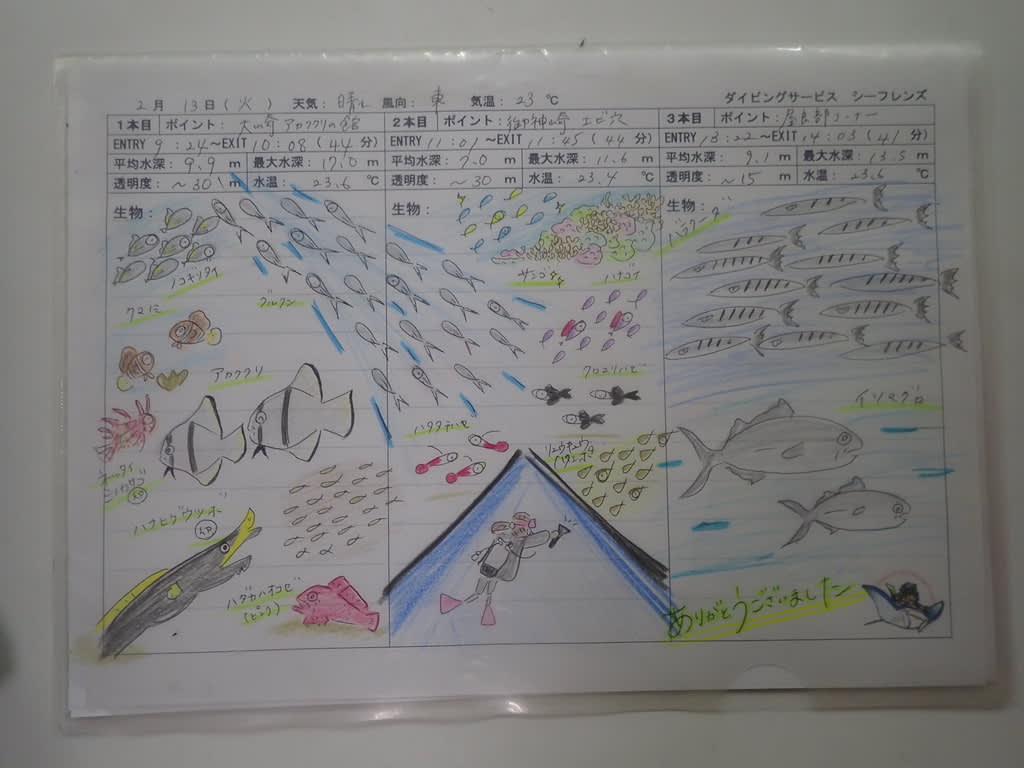 2月 13日(火) 天気: 晴れ 風向: 東 気温: 23 ℃ ダイビングサービス シーフレンズ
1本目 ポイント: 大崎 アカククリの館
ENTRY 9:24~EXIT 10:08 (44分)
平均水深: 9.9 m 最大水深: 17.0 m
透明度: ~30 m 水温: 23.6 ℃
生物:
ノコギリダイ
グルクン
クマノミ
アカククリ
ハナヒゲウツボ
ハダカハオコゼ
(ピンク)
2本目 ポイント: 御神崎 エビ穴
ENTRY 11:01~EXIT 11:45 (44分)
平均水深: 7.0 m 最大水深: 11.6 m
透明度: ~30 m 水温: 23.4 ℃
生物:
ハナゴイ
クロユリハゼ
ハタタテハゼ
リュウキュウ
ハタンポ
3本目 ポイント: 屋良部コーナー
ENTRY 13:22~EXIT 14:03 (41分)
平均水深: 9.1 m 最大水深: 13.5 m
透明度: ~15 m 水温: 23.6 ℃
生物:
バラクーダ
イソマグロ
ありがとうございました